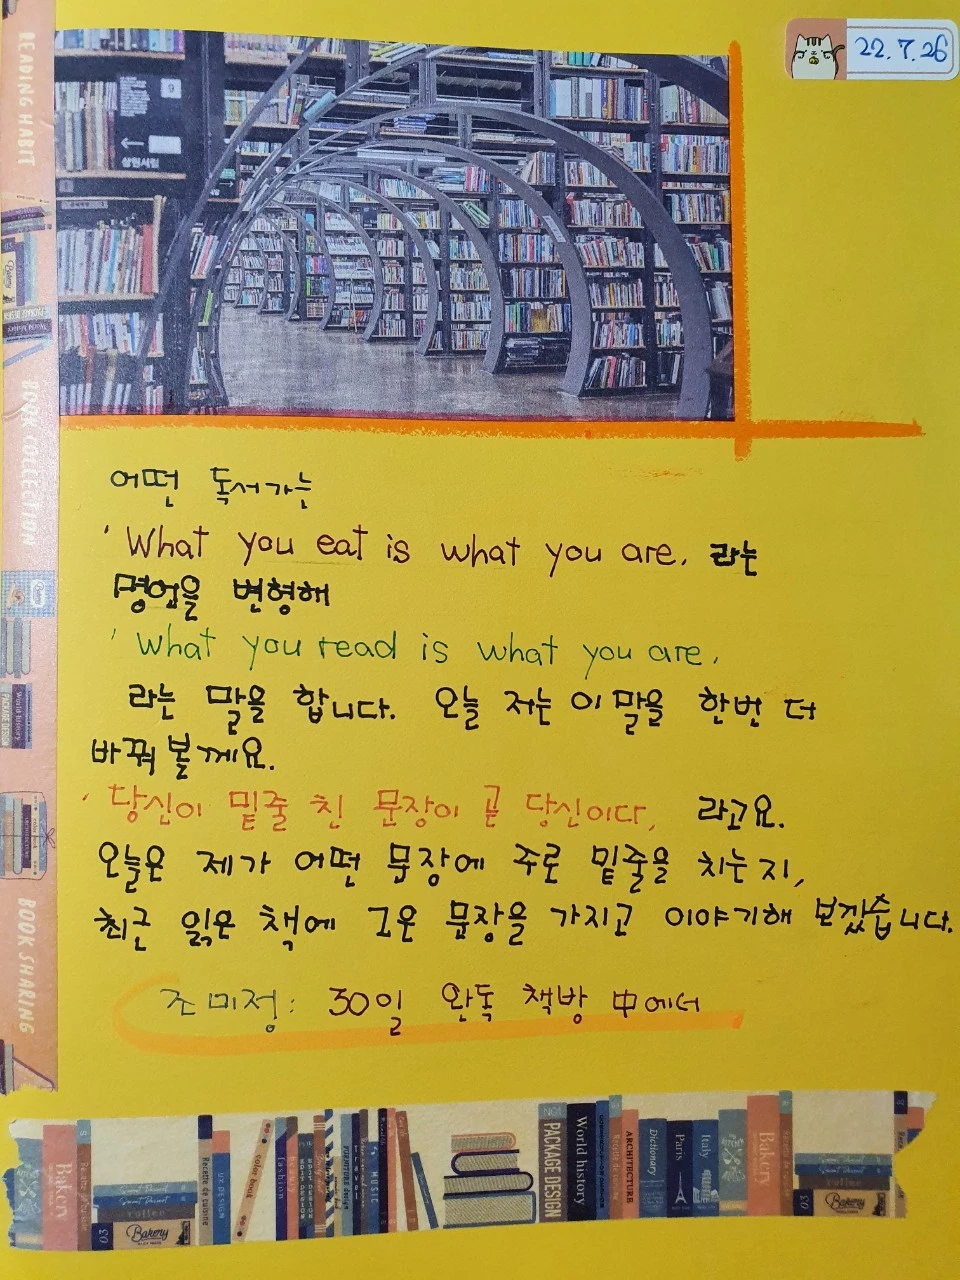 READING HABIT
BOOK COLLECTION
BOOK SHARING
22.7.26
9
어떤 독서가는
'What you eat is what you are. 라는
명언을 변형해
'What you read is what you are.
라는 말을 합니다. 오늘 저는 이 말을 한번 더
바꿔 볼께요.
'당신이 밑줄 친 문장이 곧 당신이다, 라고요.
오늘은 제가 어떤 문장에 주로 밑줄을 치는지,
최근 읽은 책에 그은 문장을 가지고 이야기해 보겠습니다.
조미정: 30일 완독 책방 中에서
Bakery
Recette de cuisine
UX DESIGN
color book
fashion
MUSIC
PACKAGE DESIGN
World history
ARCHITECTURE
Dictionary
Paris
Italy
Bakery
coffee
Bakery
03
03
coffee
Bakery